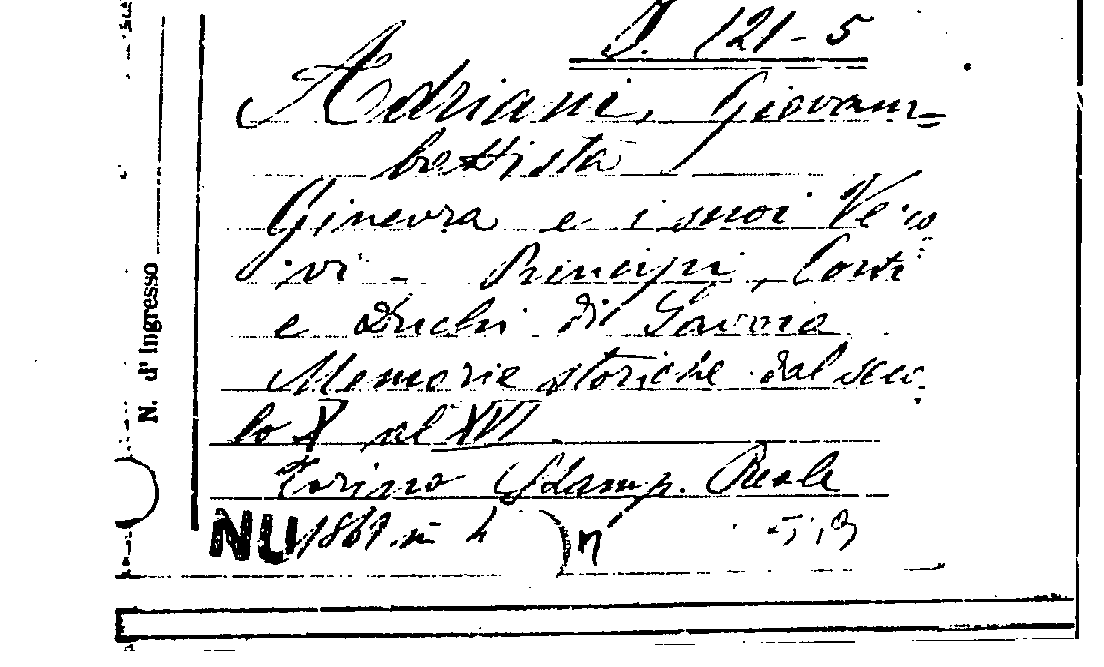 J. 121-5
Adriani, Giovam=
battista
Ginevra e i suoi Vesco
vi - Principi, Conti
e Duchi di Savoia
Memorie storiche dal seco
lo X al XVI.
Torino Stamp. Reale
NU 1869 in 4
N. d'Ingresso